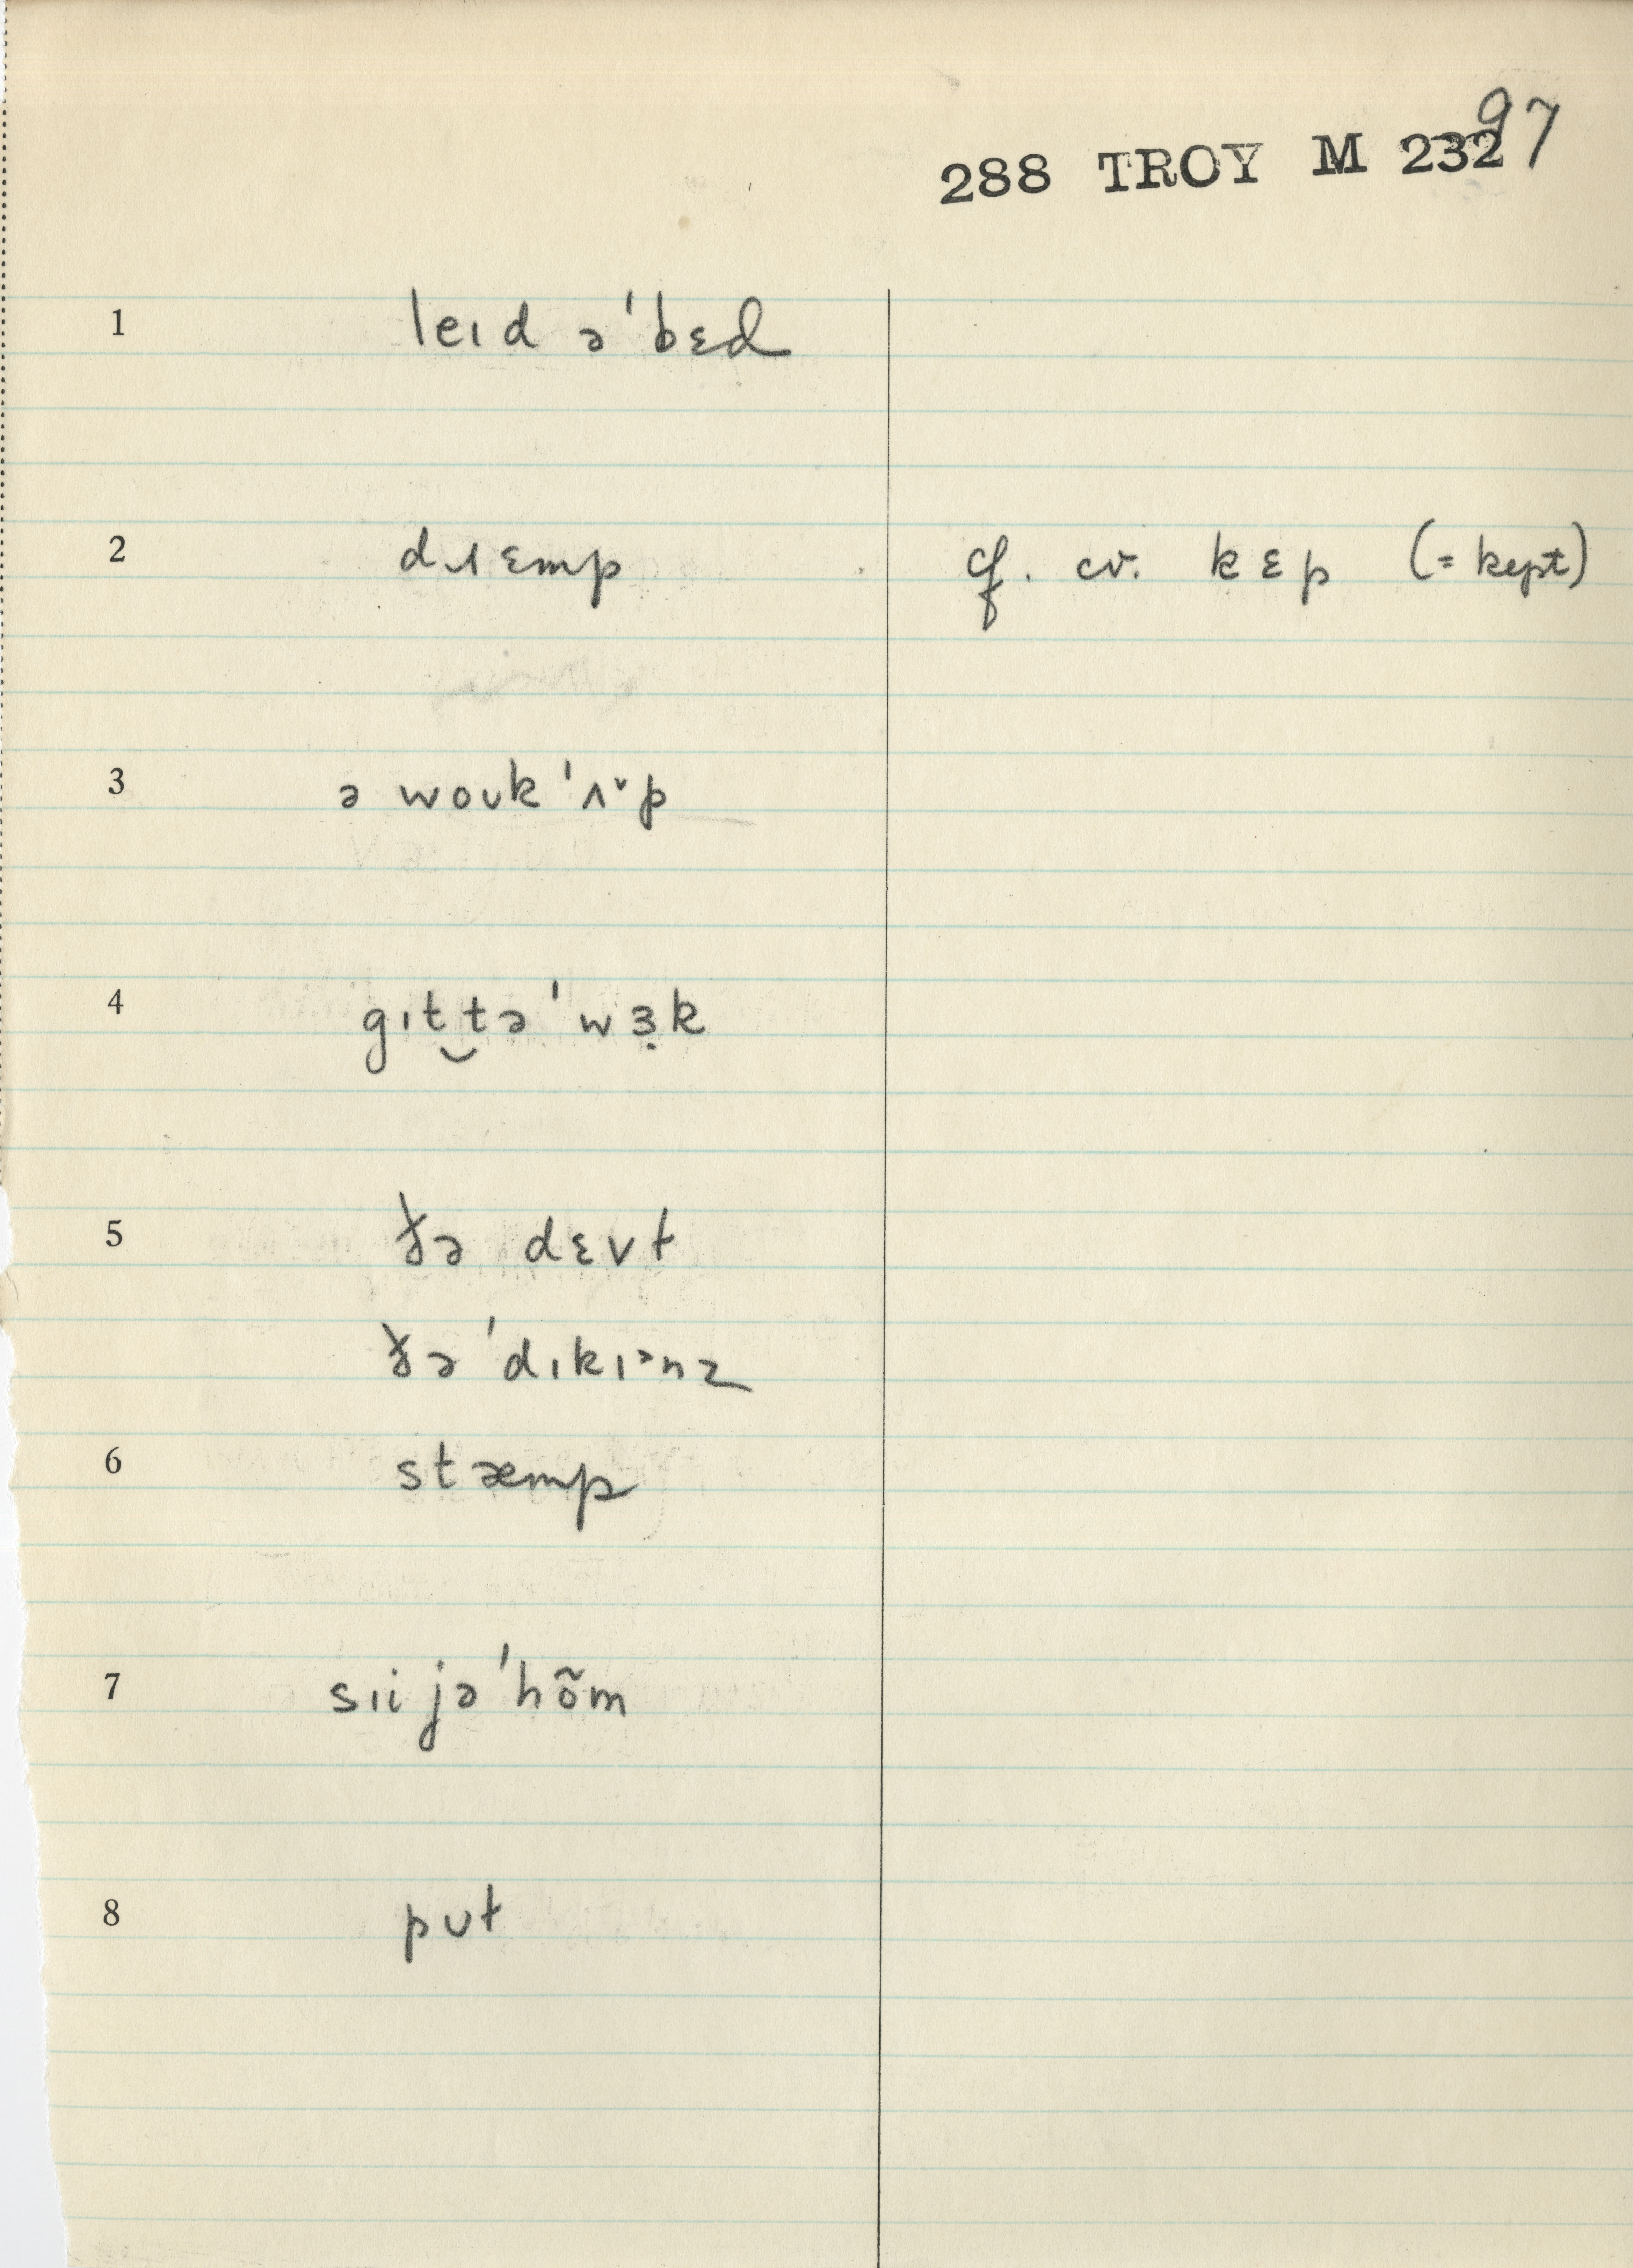 97
288 TROY M 232
1 leɪd ə'bɛd
2 dɹɛmp cf. cv. kɛp (= kept)
3 ə woʊk 'ʌᵛp
4 gɪt‿tə 'wɜ̣k
5 ðə dɛvɫ
ðə 'dɪkɪᵊnz
6 stæmp
7 sɪi jə 'hõm
8 pʊt